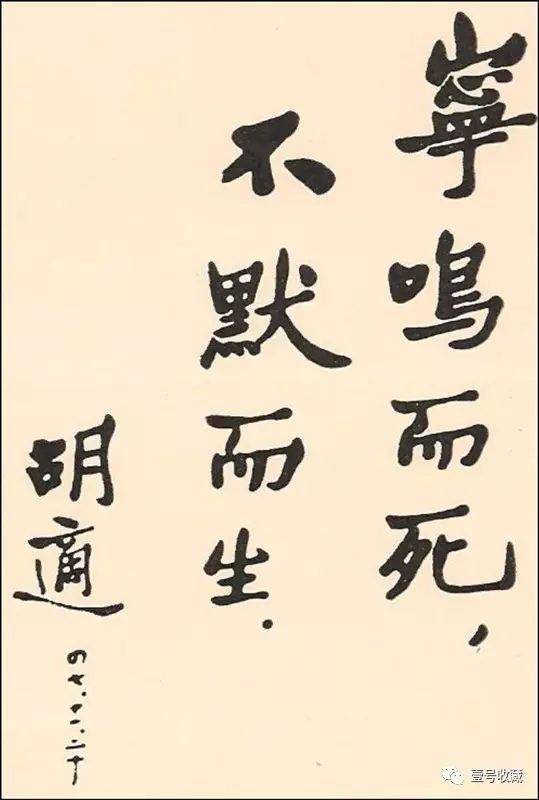 寧鳴而死，
不默而生．
胡適
四七．十一．二十
壹号收藏